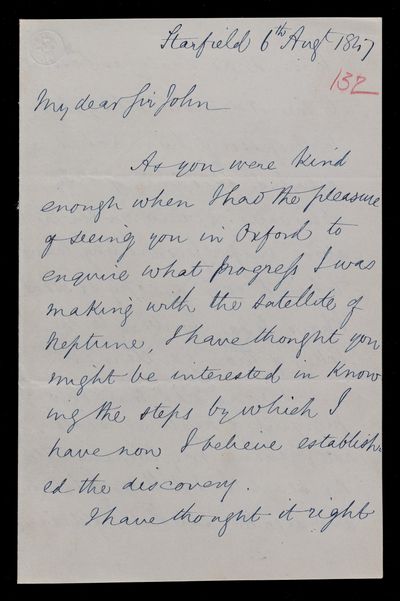 Starfield 6th Augt 1847
132
My dear Sir John
As you were kind
enough when I had the pleasure
of seeing you in Oxford to
enquire what progress I was
making with the satellite of
Neptune, I have thought you
might be interested in know
ing the steps by which I
have now I believe establish
ed the discovery.
I have thought it right